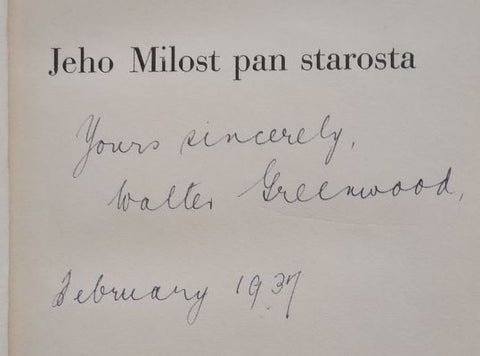 Jeho Milost pan starosta
Yours sincerely,
Walter Greenwood,
February 1937